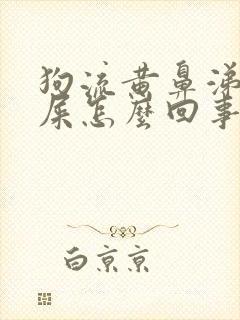 狗流黄鼻涕
屎怎麽回事
白京京